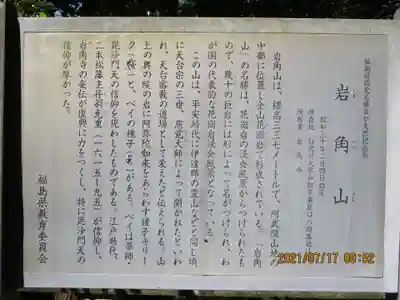 福島県指定名勝及び天然記念物
岩角山
昭和三十年二月四日指定
岩角山は、標高三三七メートルで、阿武隈山地の
中部に位置し全山花崗岩で形成されている。「岩角
山」の名称は、花崗岩の浸食風景からつけられたも
ので、幾十の巨岩には形によって名がつけられ、わ
が国の代表的な花崗岩浸食風景となっている。
この山は、平安時代に伊達郡の霊山などと同じ頃
に天台宗の三世、慈覚大師によって開かれたといわ
れ、天台密教の道場として栄えたと伝えられる。山
上の奥の院の岩に阿弥陀如来をあらわす種子キリー
ク と、ベイの種子 がある。ベイは薬師・
毘沙門天の信仰を現わしたものである。江戸時代、
二本松藩主丹羽光重（一六一五~九五）が信仰し、
岩角寺の堂伝が復興に力をつくし、特に毘沙門天の
信仰が厚かった。
福島県教育委員会
2021/07/17 09:52